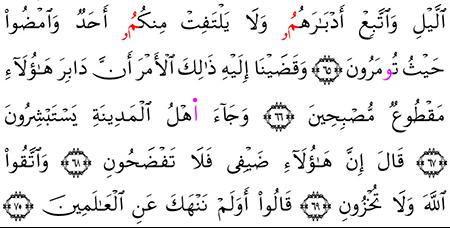 ٱلَّيۡلِ وَٱتَّبِعۡ أَدۡبَٰرَهُمُۥ وَلَا يَلۡتَفِتۡ مِنكُمُۥ أَحَدٞ وَٱمۡضُواْ
حَيۡثُ تُومَرُونَ ۝٦٥ وَقَضَيۡنَا إِلَيۡهِ ذَٰلِكَ ٱلۡأَمۡرَ أَنَّ دَابِرَ هَٰؤُلَآءِ
مَقۡطُوعٞ مُّصۡبِحِينَ ۝٦٦ وَجَآءَ ا۬هۡلُ ٱلۡمَدِينَةِ يَسۡتَبۡشِرُونَ
۝٦٧ قَالَ إِنَّ هَٰؤُلَآءِ ضَيۡفِي فَلَا تَفۡضَحُونِ ۝٦٨ وَٱتَّقُواْ
ٱللَّهَ وَلَا تُخۡزُونِ ۝٦٩ قَالُواْ أَوَلَمۡ نَنۡهَكَ عَنِ ٱلۡعَٰلَمِينَ ۝٧٠